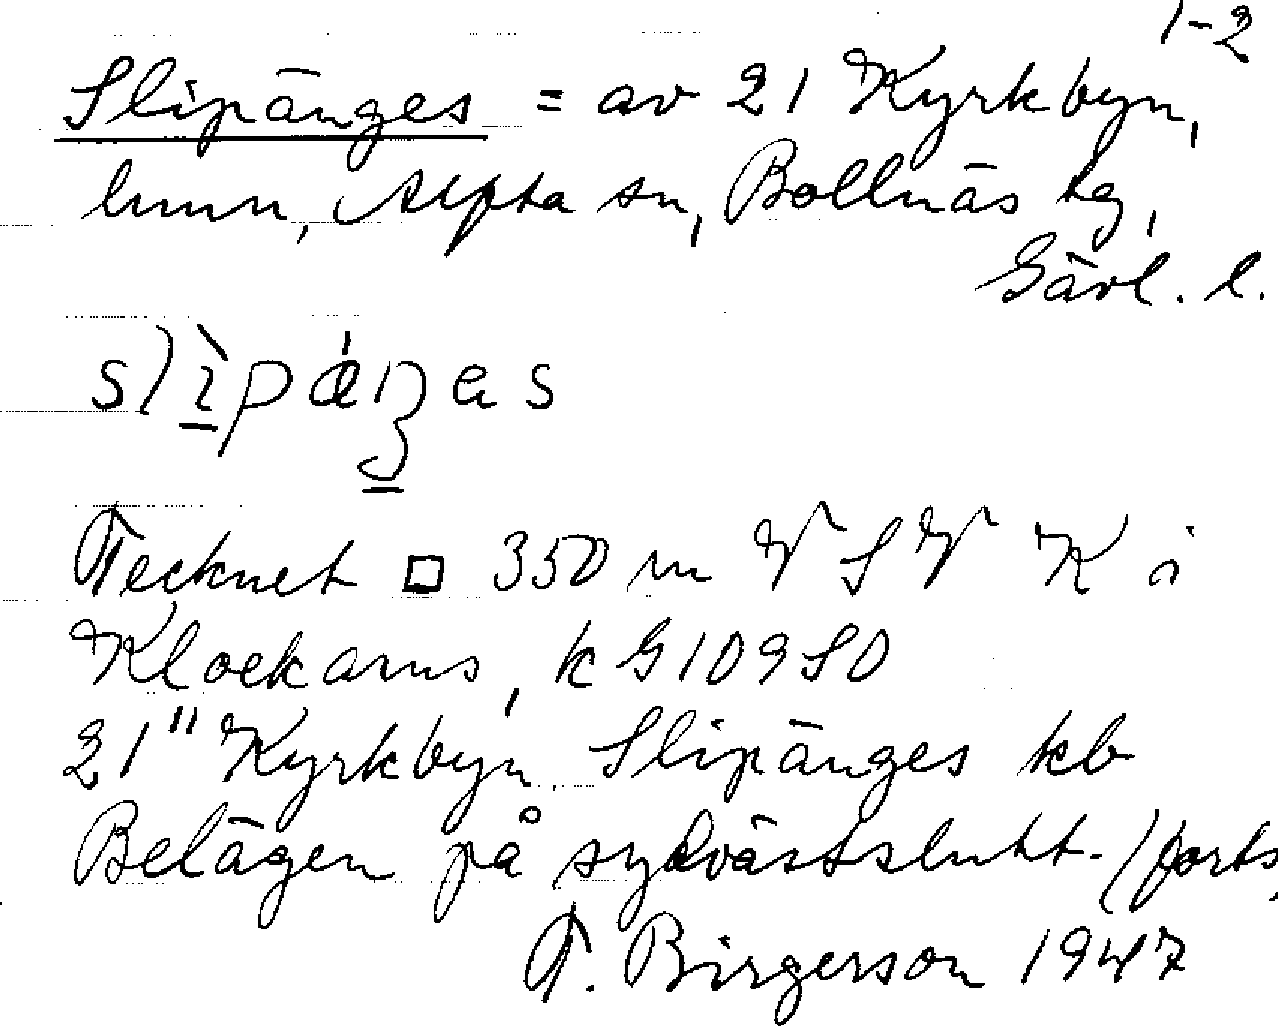 1-2
Slipänges = av 21 Kyrkbyn,
hmn, Alfta sn, Bollnäs tg,
Gävl. l.
Tecknet □ 350 m VSV K i
Klockarns, kG109SO
21" Kyrkbyn Slipänges kb
Belägen på sydvästslutt- (forts.
T. Birgerson 1947